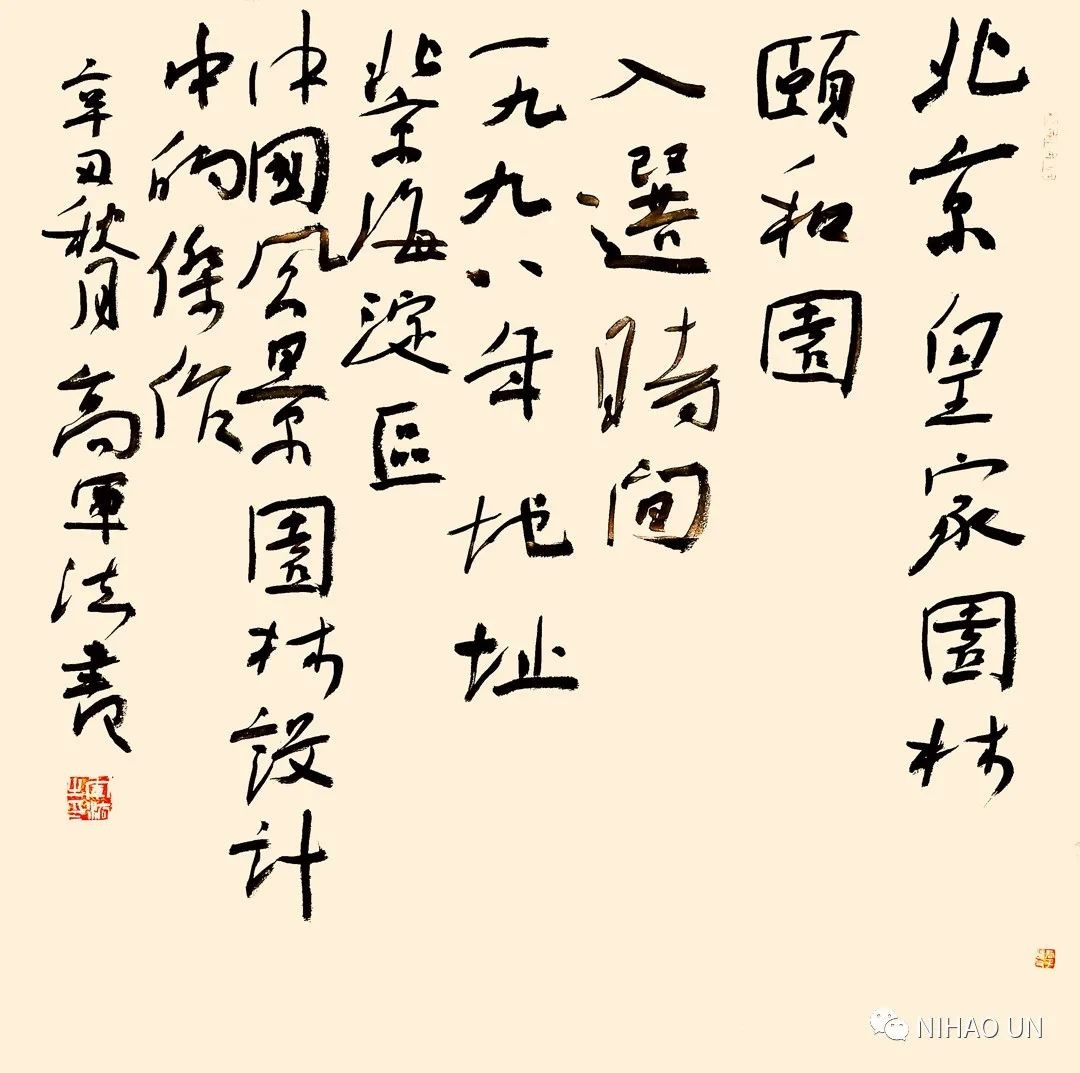 北京皇家園林
頤和園
入選時間
一九九八年地址
北京海淀區
中國风景園林設計
中的傑作
辛丑秋月高軍法書
NIHAO UN